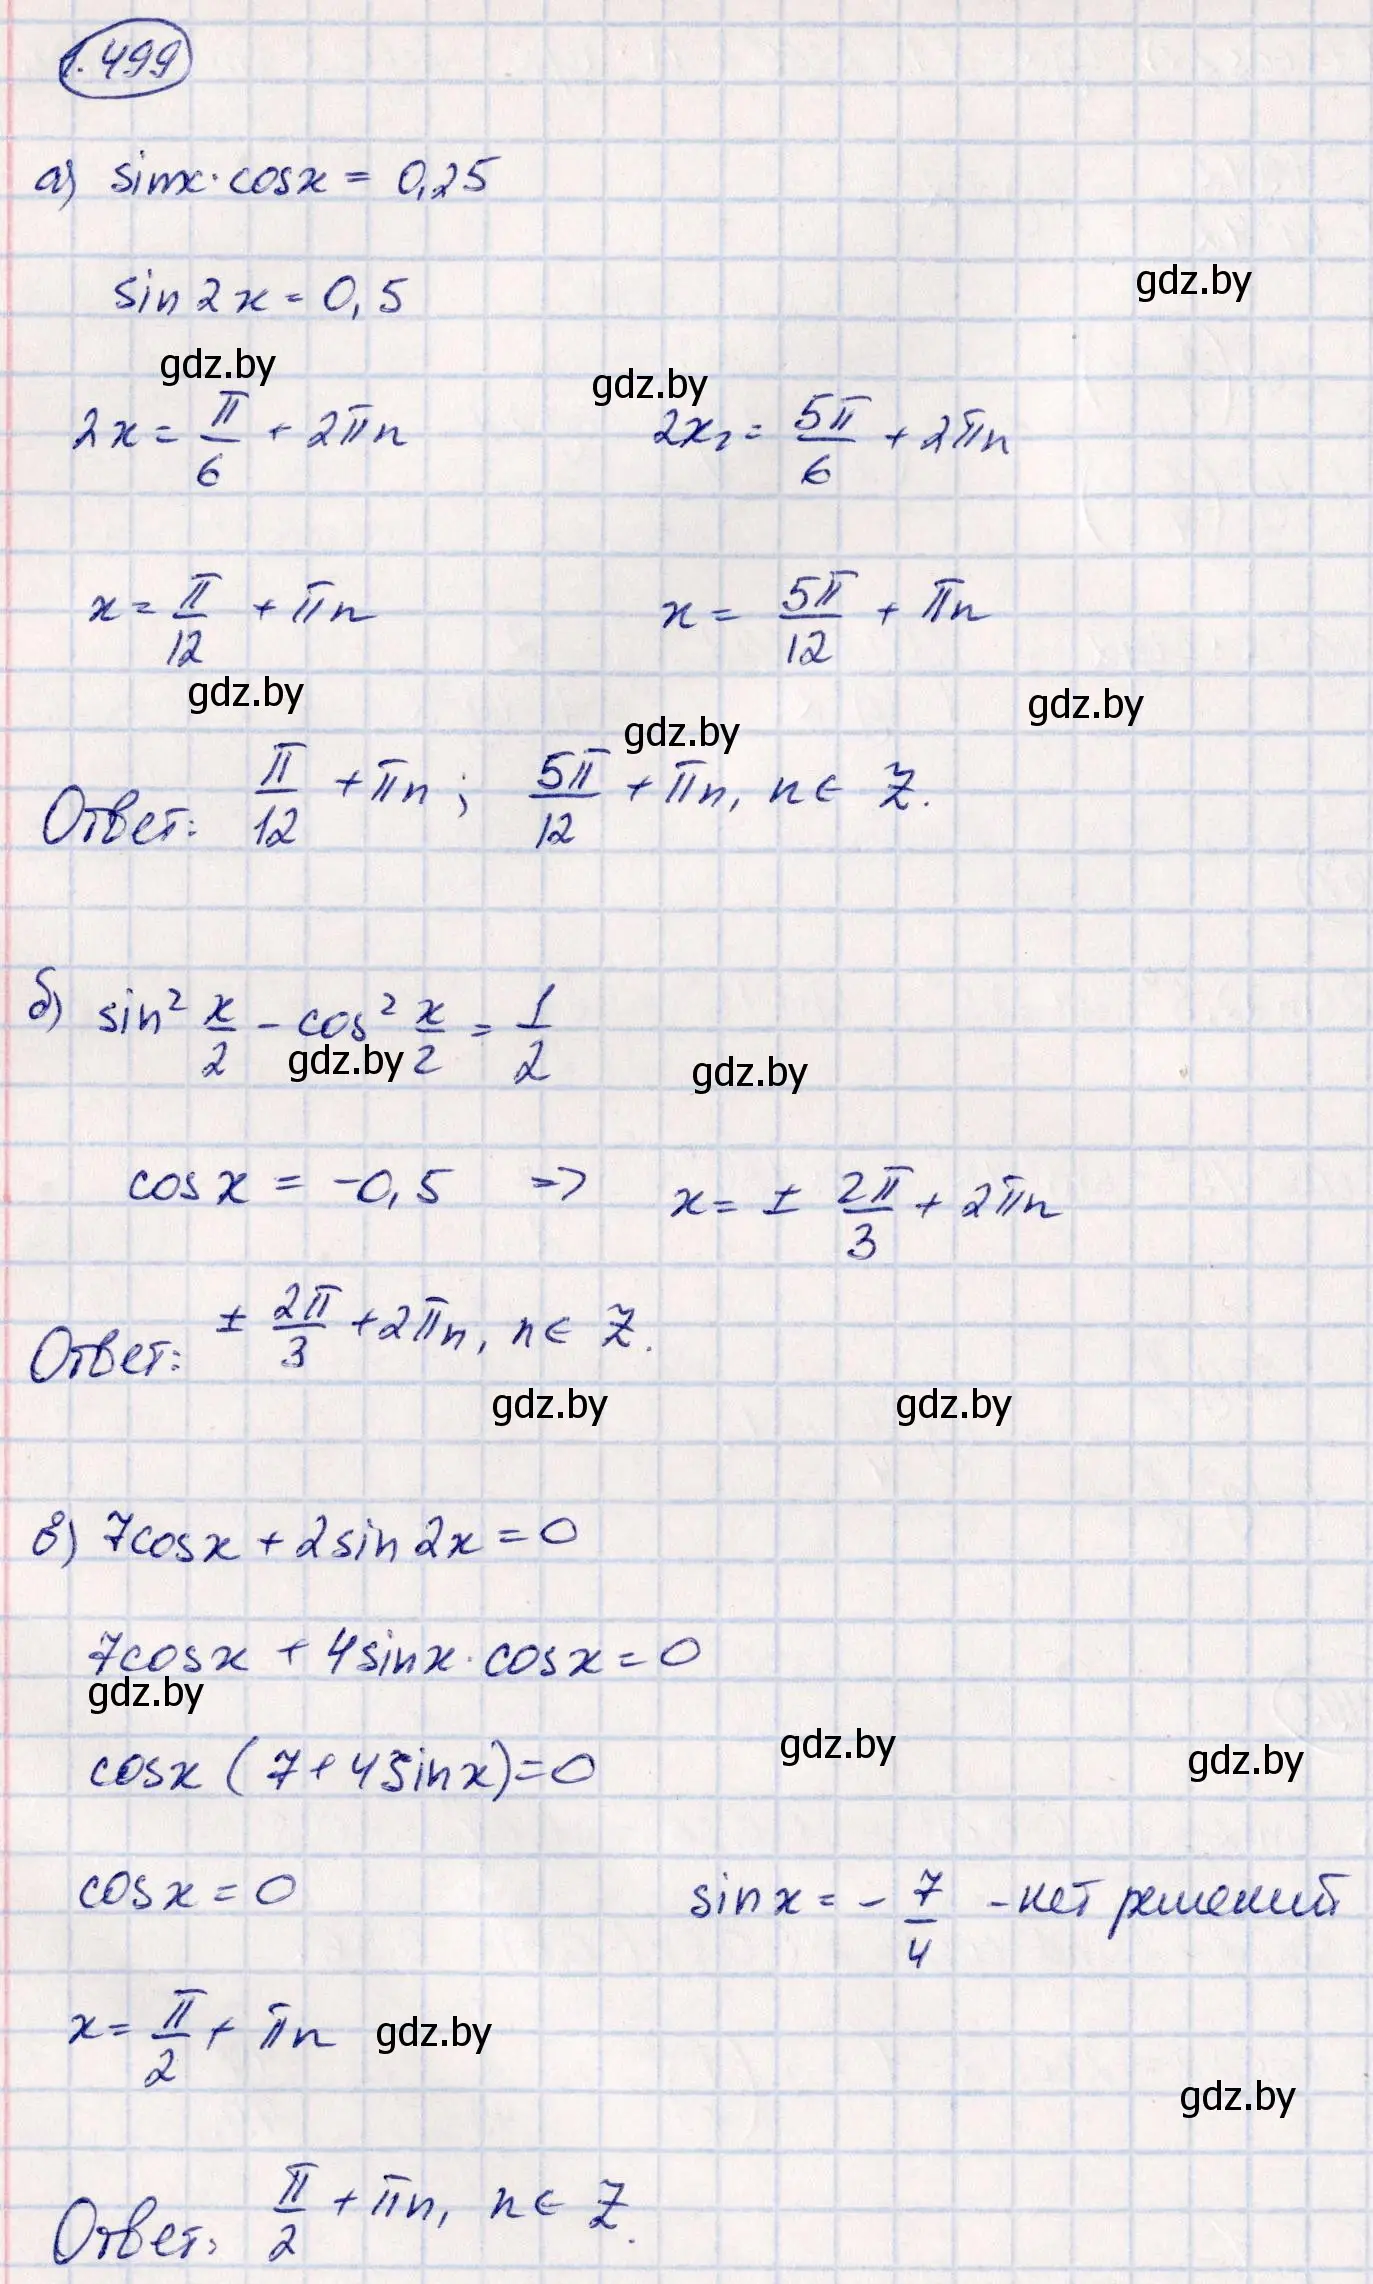 1.499
а) sinx·cosx = 0,25
sin2x = 0,5
gdz.by
gdz.by gdz.by
2x = π/6 + 2πn 2x₂ = 5π/6 + 2πn
x = π/12 + πn x = 5π/12 + πn
gdz.by gdz.by gdz.by
Ответ: π/12 + πn; 5π/12 + πn, n∈ Z.
б) sin² x/2 - cos² x/2 = 1/2
gdz.by gdz.by
cosx = -0,5 => x = ± 2π/3 + 2πn
Ответ: ± 2π/3 + 2πn, n∈ Z.
gdz.by gdz.by
в) 7cosx + 2sin2x = 0
7cosx + 4sinx·cosx = 0
gdz.by
cosx (7+4sinx) = 0
gdz.by gdz.by
cosx = 0 sinx = - 7/4 - нет решений
x = π/2 + πn gdz.by
gdz.by
Ответ: π/2 + πn, n∈ Z.